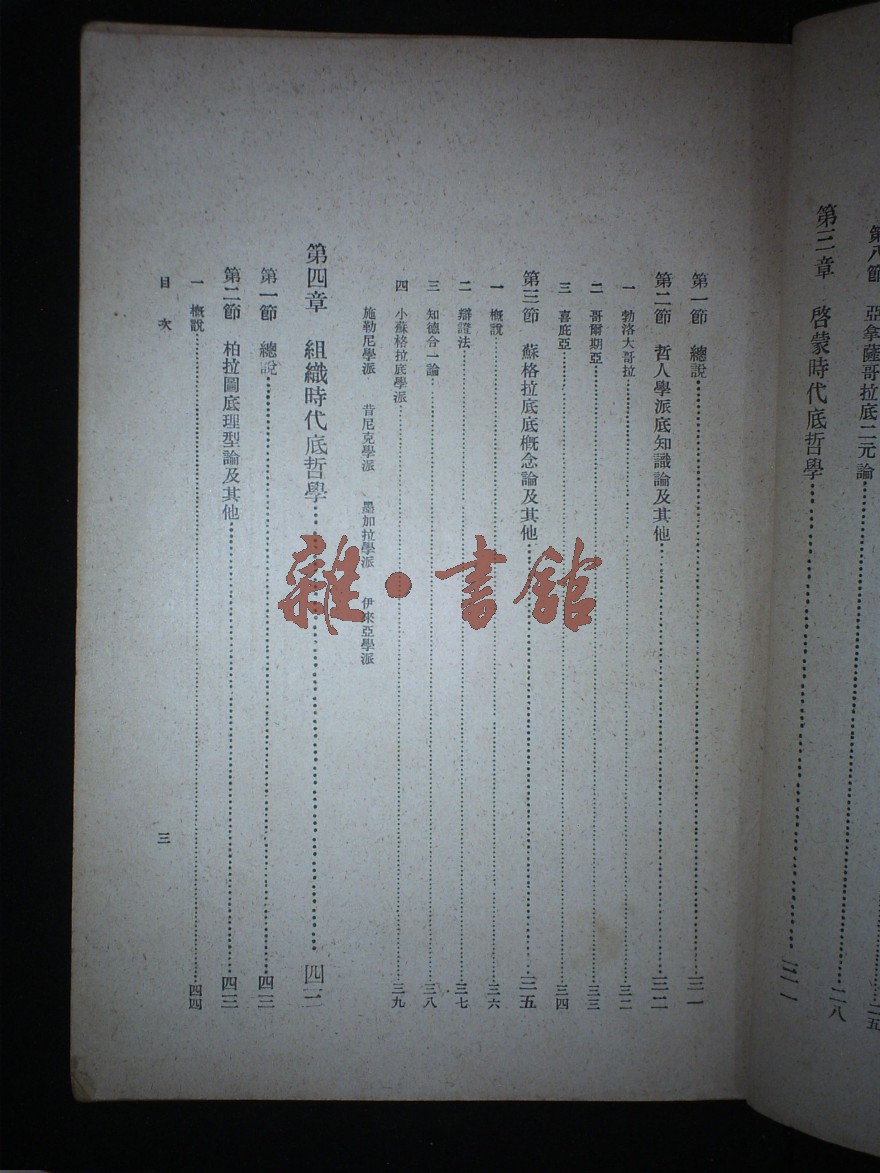 第八節 亞拿薩哥拉底二元論……二八
第三章 啓蒙時代底哲學……三一
第一節 總說……三一
第二節 哲人學派底知識論及其他……三二
一 勃洛大哥拉……三二
二 哥爾期亞……三三
三 喜庇亞……三四
第三節 蘇格拉底底概念論及其他……三五
一 概說……三六
二 辯證法……三七
三 知德合一論……三八
四 小蘇格拉底學派……三九
施勒尼學派 昔尼克學派 墨加拉學派 伊來亞學派
第四章 組織時代底哲學……四三
第一節 總說……四三
第二節 柏拉圖底理型論及其他……四三
一 概說……四四
目次 三
雜·書館